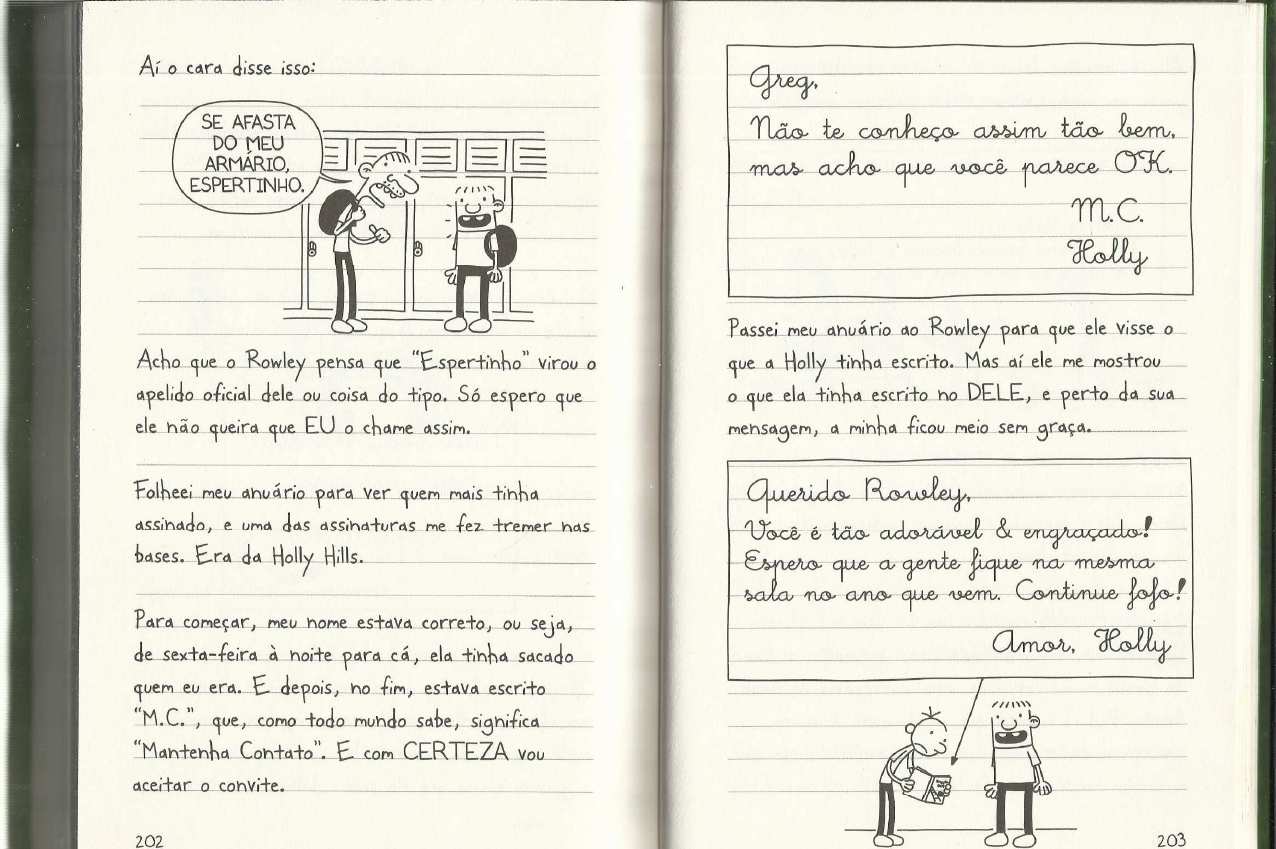 Aí o cara disse isso:
SE AFASTA
DO MEU
ARMÁRIO,
ESPERTINHO.
Acho que o Rowley pensa que "Espertinho" virou o
apelido oficial dele ou coisa do tipo. Só espero que
ele não queira que EU o chame assim.
Folheei meu anuário para ver quem mais tinha
assinado, e uma das assinaturas me fez tremer nas
bases. Era da Holly Hills.
Para começar, meu nome estava correto, ou seja,
de sexta-feira à noite para cá, ela tinha sacado
quem eu era. E depois, no fim, estava escrito
"M.C.", que, como todo mundo sabe, significa
"Mantenha Contato". E com CERTEZA vou
aceitar o convite.
202
Greg,
Não te conheço assim tão bem,
mas acho que você parece OK.
M.C.
Holly
Passei meu anuário ao Rowley para que ele visse o
que a Holly tinha escrito. Mas aí ele me mostrou
o que ela tinha escrito no DELE, e perto da sua
mensagem, a minha ficou meio sem graça.
Querido Rowley,
Você é tão adorável & engraçado!
Espero que a gente fique na mesma
sala no ano que vem. Continue fofo!
Amor, Holly
203